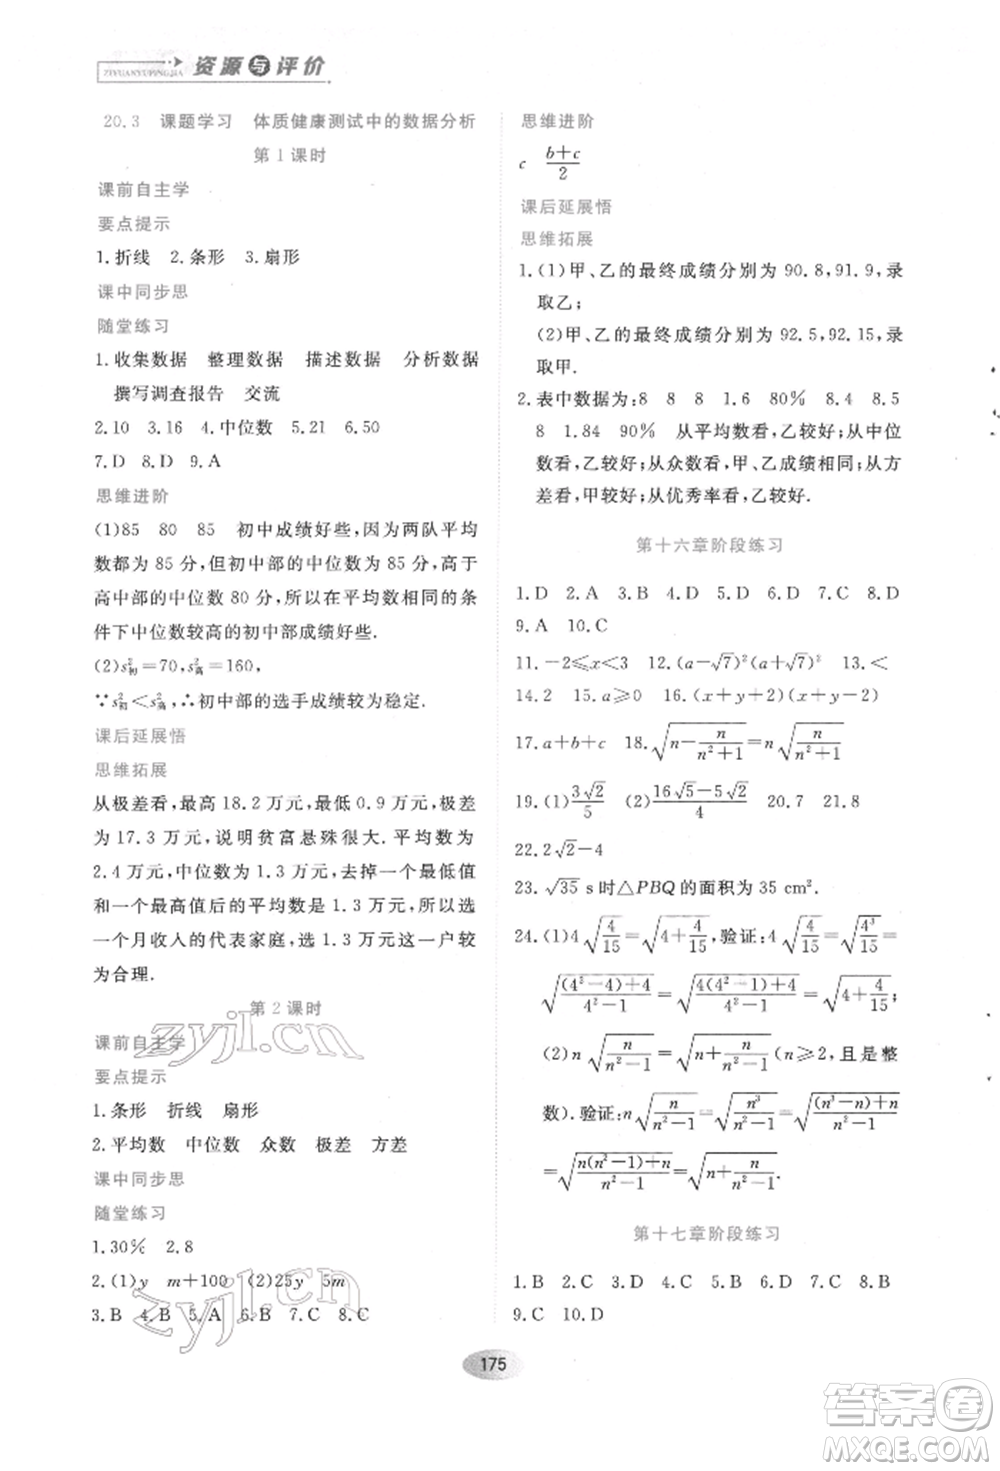 资源与评价
ZIYUANYUPINGJIA
20.3 课题学习 体质健康测试中的数据分析
第1课时
课前自主学
要点提示
1.折线 2.条形 3.扇形
课中同步思
随堂练习
1.收集数据 整理数据 描述数据 分析数据
撰写调查报告 交流
2.10 3.16 4.中位数 5.21 6.50
7.D 8.D 9.A
思维进阶
(1)85 80 85 初中成绩好些,因为两队平均
数都为 85 分,但初中部的中位数 85 分,高于
高中部的中位数 80 分,所以在平均数相同的条
件下中位数较高的初中部成绩好些.
(2)s²初=70,s²高=160,
∵s²初<s²高,∴初中部的选手成绩较为稳定.
课后延展悟
思维拓展
从极差看,最高 18.2 万元,最低 0.9 万元,极差
为 17.3 万元,说明贫富悬殊很大.平均数为
2.4 万元,中位数为 1.3 万元,去掉一个最低值
和一个最高值后的平均数是 1.3 万元,所以选
一个月收入的代表家庭,选 1.3 万元这一户较
为合理.
第2课时
课前自主学
要点提示
1.条形 折线 扇形
2.平均数 中位数 众数 极差 方差
课中同步思
随堂练习
1.30% 2.8
2.(1)y m+100 (2)25y 5m
3.B 4.B 5.A 6.B 7.C 8.C
思维进阶
c (b+c)/2
课后延展悟
思维拓展
1.(1)甲、乙的最终成绩分别为 90.8,91.9,录
取乙;
(2)甲、乙的最终成绩分别为 92.5,92.15,录
取甲.
2.表中数据为:8 8 8 1.6 80% 8.4 8.5
8 1.84 90% 从平均数看,乙较好;从中位
数看,乙较好;从众数看,甲、乙成绩相同;从方
差看,甲较好;从优秀率看,乙较好.
第十六章阶段练习
1.D 2.A 3.B 4.D 5.D 6.C 7.C 8.D
9.A 10.C
11.-2≤x<3 12.(a-√7)²(a+√7)² 13.<
14.2 15.a≥0 16.(x+y+2)(x+y-2)
17.a+b+c 18.√(n-n/(n²+1))=n√(n/(n²+1))
19.(1)3√2/5 (2)(16√5-5√2)/4 20.7 21.8
22.2√2-4
23.√35 s时△PBQ的面积为 35 cm².
24.(1)4√(4/15)=√(4+4/15),验证:4√(4/15)=√(4³/15)=
√(((4²-4)+4)/(4²-1))=√((4(4²-1)+4)/(4²-1))=√(4+4/15);
(2)n√(n/(n²-1))=√(n+n/(n²-1))(n≥2,且是整
数).验证:n√(n/(n²-1))=√(n³/(n²-1))=√(((n³-n)+n)/(n²-1))
=√((n(n²-1)+n)/(n²-1))=√(n+n/(n²-1)).
第十七章阶段练习
1.B 2.C 3.D 4.D 5.C 6.B 7.C 8.B
9.C 10.D
175
zyjl.cn
zyjl.cn
答案卷
MXQE.COM